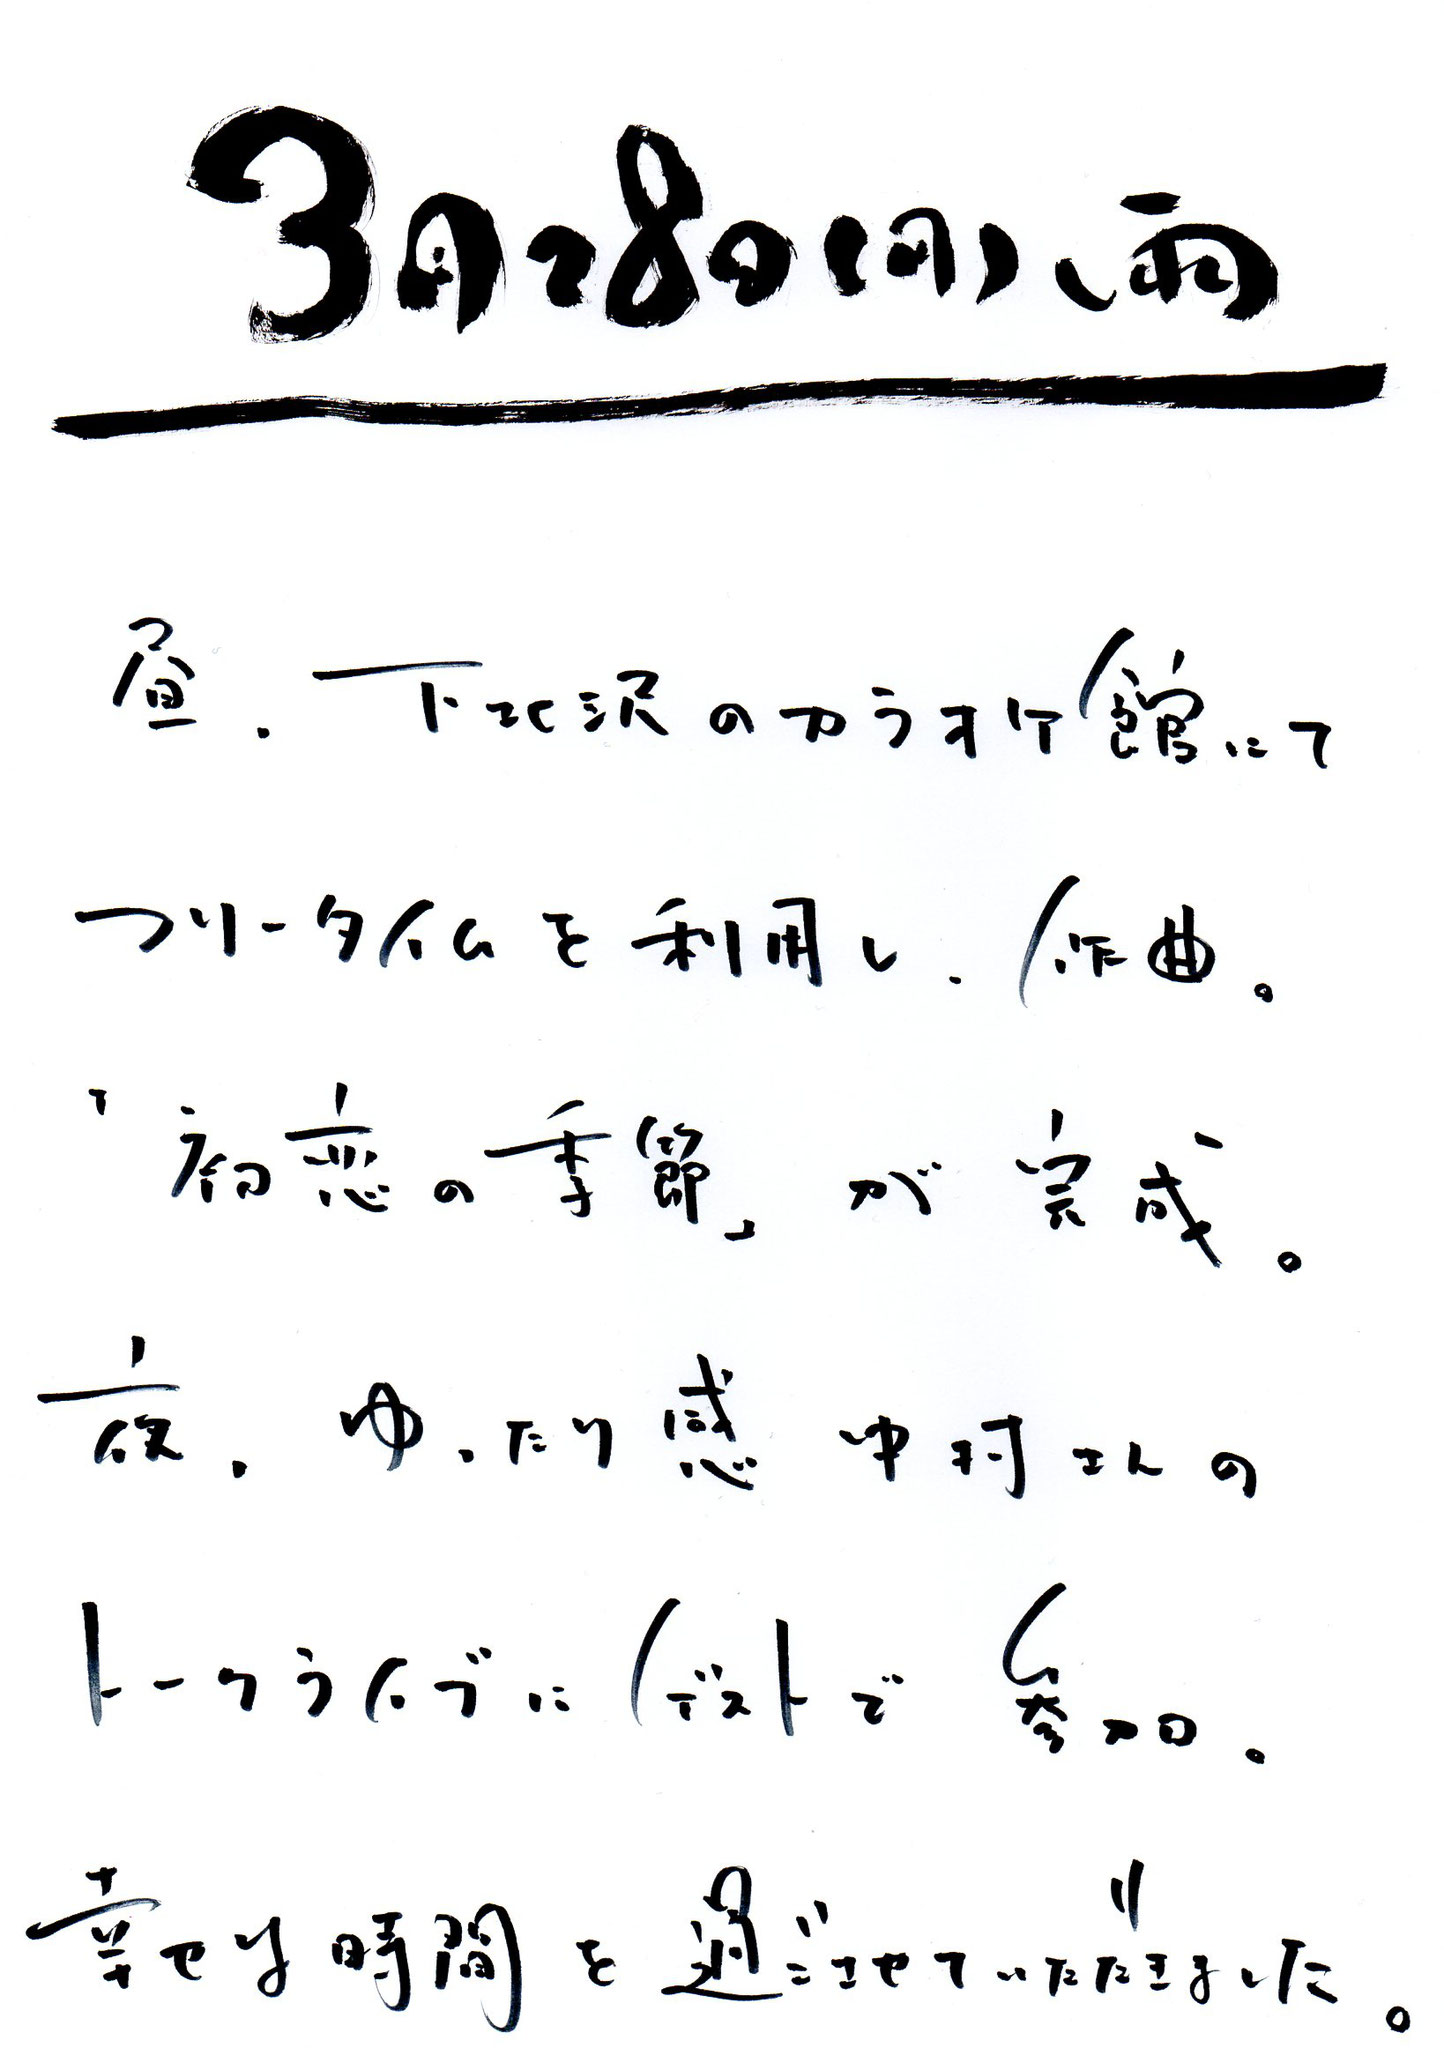 3月28日(月)、雨
昼、下北沢のカラオケ館にて
フリータイムを利用し、作曲。
「初恋の季節」が完成。
夜、ゆったり感中村さんの
トークライブにゲストで参加。
幸せな時間を過ごさせていただきました。